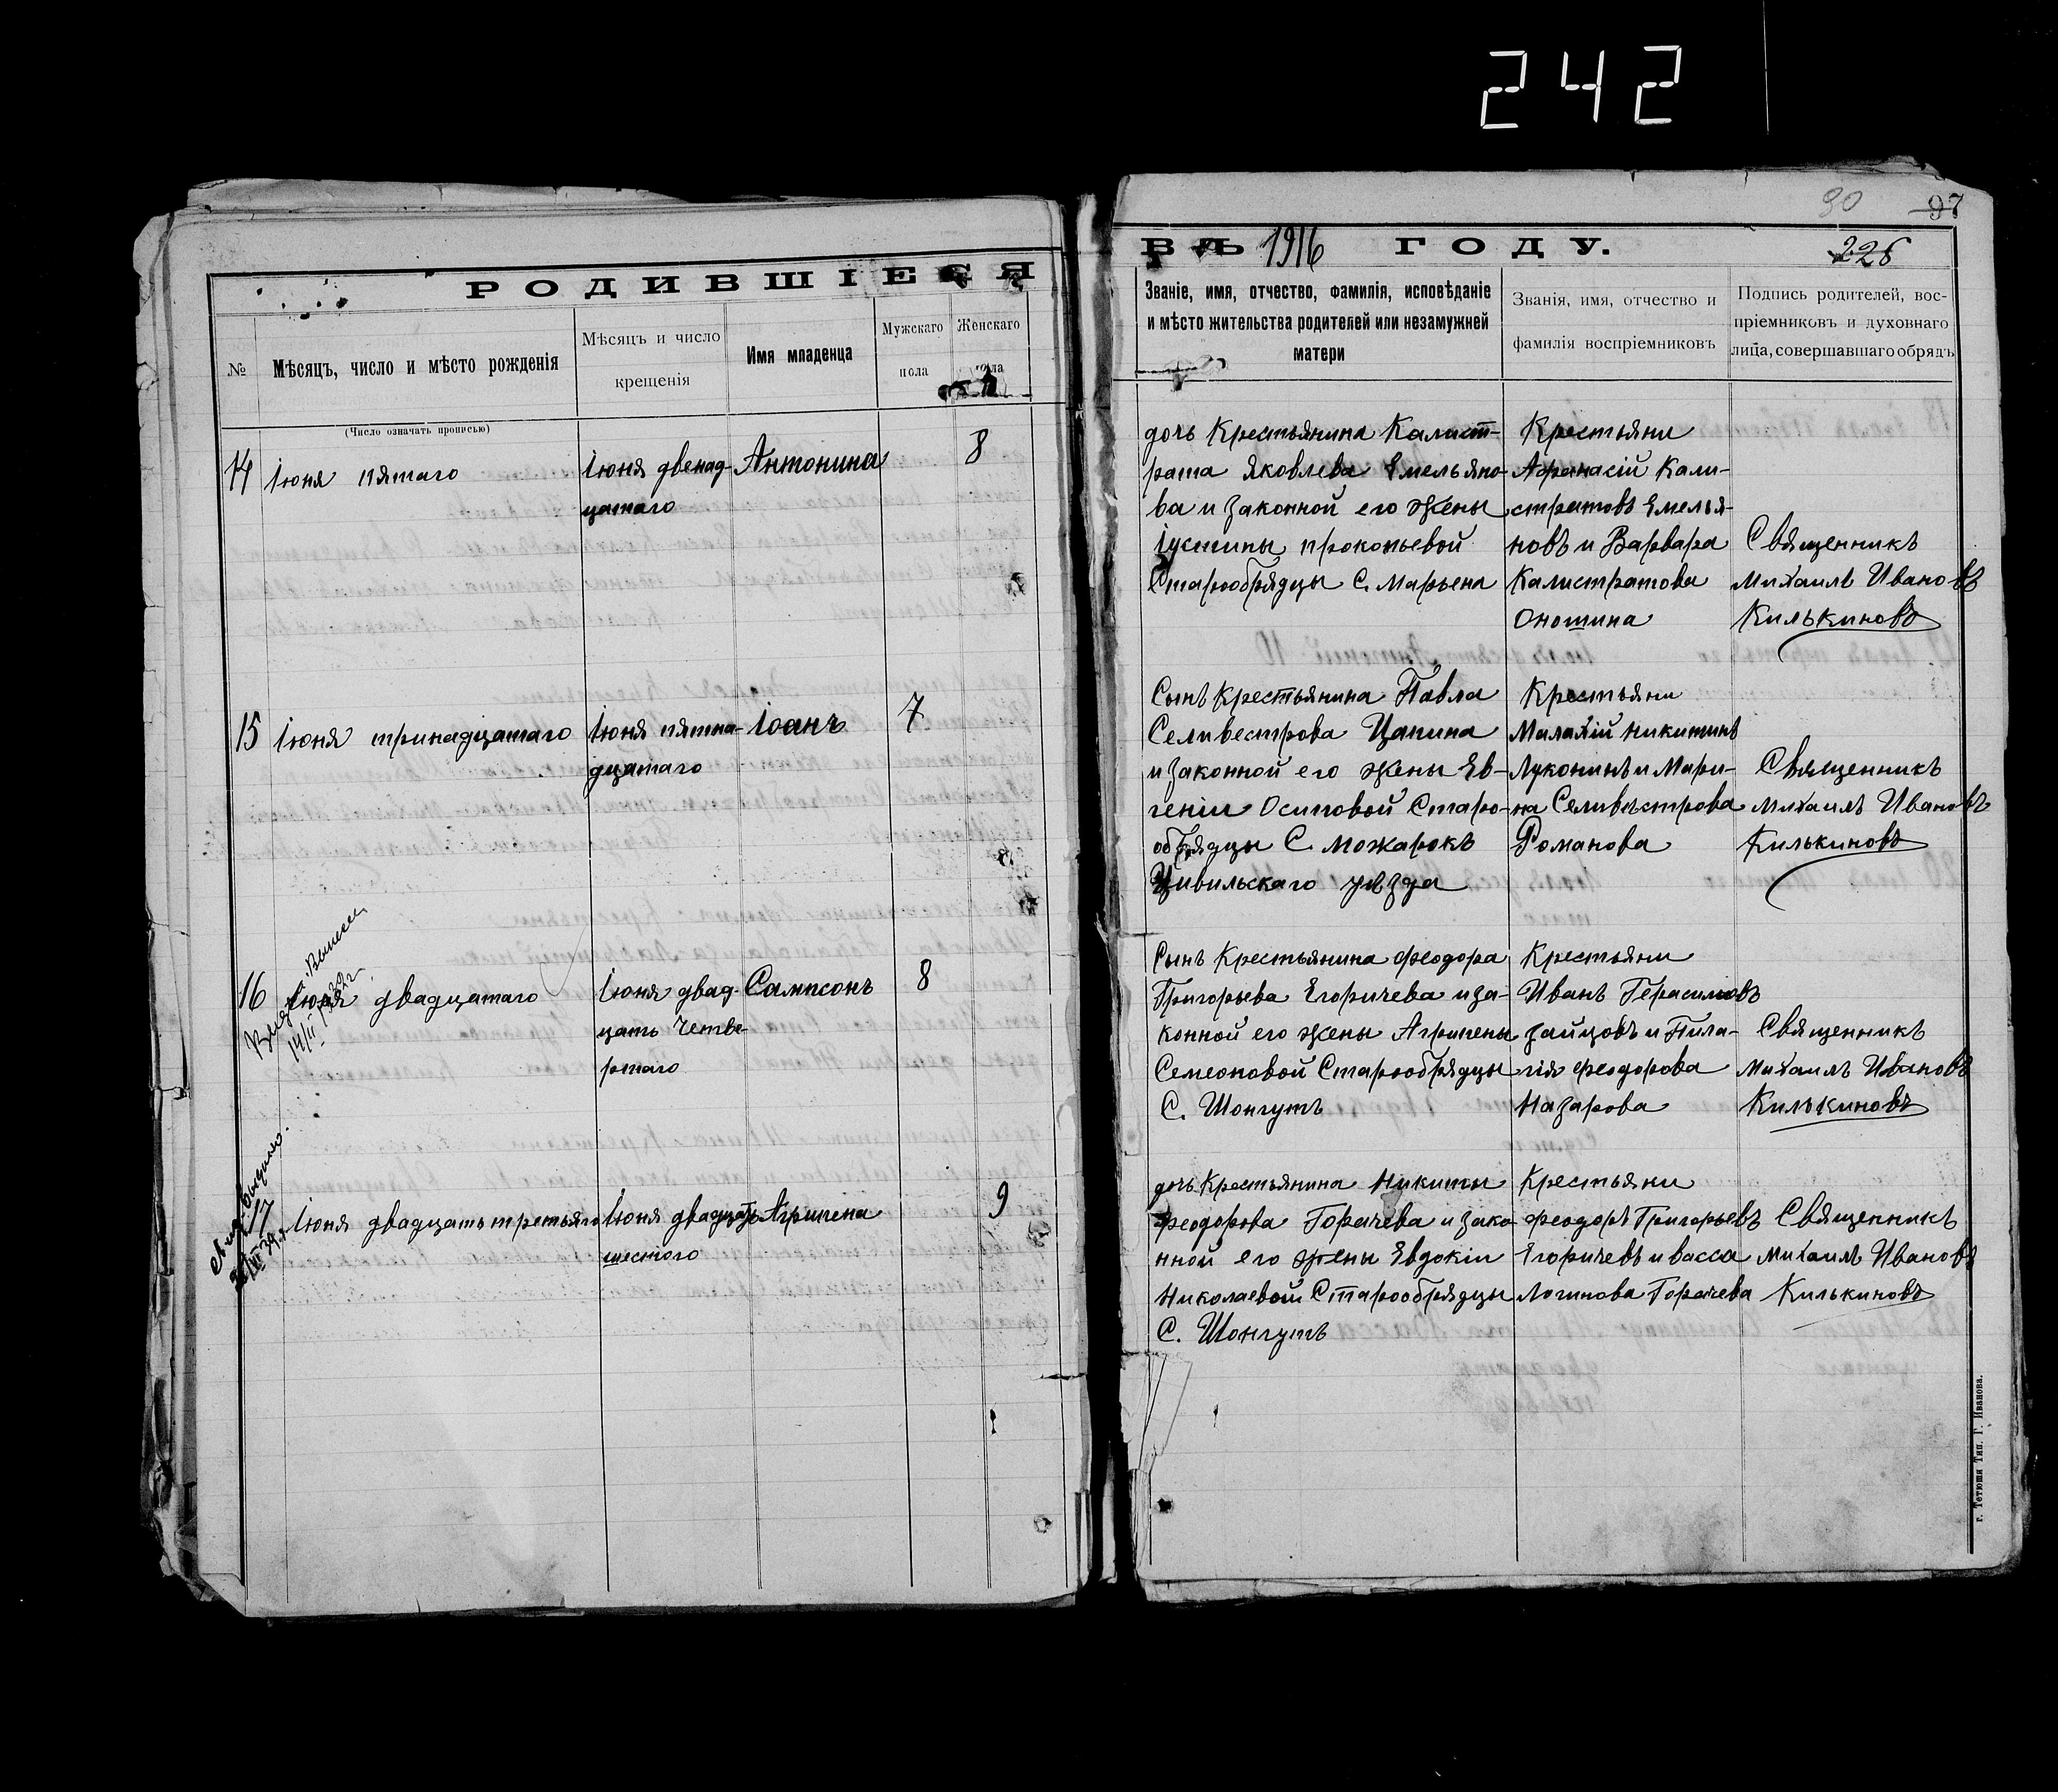 242
90 97
РОДИВШІЕСЯ
ВЪ 1916 ГОДУ.
226
№
Мѣсяцъ, число и мѣсто рожденія
(Число означать прописью)
Мѣсяцъ и число
крещенія
Имя младенца
Мужскаго
пола
Женскаго
пола
Званіе, имя, отчество, фамилія, исповѣданіе
и мѣсто жительства родителей или незамужней
матери
Званія, имя, отчество и
фамилія воспріемниковъ
Подпись родителей, вос-
пріемниковъ и духовнаго
лица, совершавшаго обрядъ
14
Іюня пятаго
Іюня двенад-
цатаго
Антонина
8
дочь Крестьянина Калист-
рата Яковлева Емельяно-
ва и законной его жены
Іустины прокопьевой
Старообрядцы С. Марьена
Крестьяни
Афанасій Кали-
стратовъ Емелья-
новъ и Варвара
Калистратова
Оношина
Священникъ
Михаилъ Ивановъ
Килькиновъ
15
Іюня тринадцатаго
Іюня пятна-
дцатаго
Іоанъ
7
Сынъ крестьянина Павла
Селивестрова Цапина
и законной его жены Ев-
геніи Осиповой Старо-
обрядцы С. Можарокъ
Цивильскаго уѣзда
Крестьяни
Малахій Никитинъ
Луконинъ и Мари-
на Селивѣстрова
Романова
Священникъ
Михаилъ Ивановъ
Килькиновъ
16
Іюня двадцатаго
Іюня двад-
цать четве-
ртаго
Сампсонъ
8
Сынъ Крестьянина Феодора
Григорьева Егоричева и за-
конной его жены Агрипены
Семеоновой Старообрядцы
С. Шонгутъ
Крестьяни
Иванъ Герасимовъ
Зайцовъ и Пила-
гія Феодорова
Назарова
Священникъ
Михаилъ Ивановъ
Килькиновъ
17
Іюня двадцать третьяго
Іюня двадцать
шестого
Агрипена
9
дочь Крестьянина Никиты
Феодорова Горачева и зако-
нной его жены Евдокіи
Николаевой Старообрядцы
С. Шонгутъ
Крестьяни
Феодоръ Григорьевъ
Егоричевъ и васса
Логинова Горачева
Священникъ
Михаилъ Ивановъ
Килькиновъ
г. Тетюши Тип. Г. Иванова.